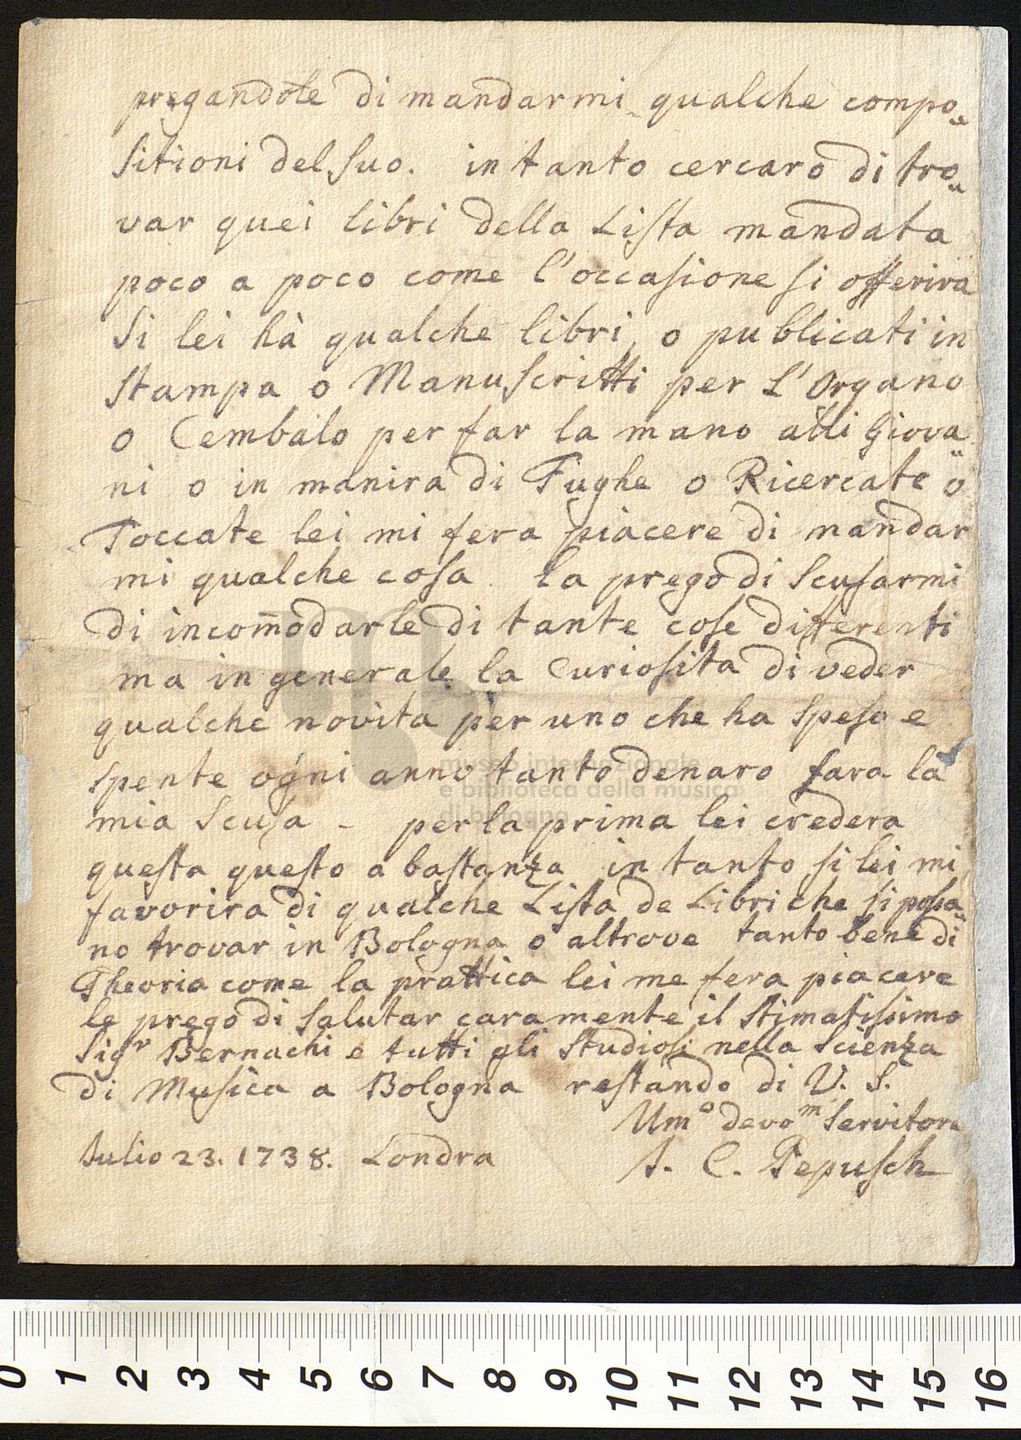 pregandole di mandarmi qualche compo„
sitioni del suo. in tanto cercarò di tro„
var quei libri della Lista mandata
poco a poco come l'occasione si offerira
Si lei hà qualche libri, o publicati in
stampa o Manuscritti per L'Organo
o Cembalo per far la mano alli Giova„
ni o in manira di Fughe o Ricercate o
Toccate lei mi fera piacere di mandar
mi qualche cosa. la prego di Scusarmi
di incom̄odarle di tante cose differenti
ma in generale la Curiosita di veder
qualche novita per uno che ha speso e
spente ogni anno tanto denaro fara la
mia Scusa - per la prima lei credera
questa questo a bastanza in tanto si lei mi
favorira di qualche Lista de Libri che si possa„
no trovar in Bologna o altrove tanto bene di
Theoria come la prattica lei me fera piacere
le prego di salutar caramente il Stimatissimo
Sigr Bernachi e tutti gli Studiosi nella Scienza
di Musica a Bologna restando di V. S.
Umo devom Servitore
Iulio 23. 1738. Londra I. C. Pepusch
museo internazionale
e biblioteca della musica
di bologna
0 1 2 3 4 5 6 7 8 9 10 11 12 13 14 15 16